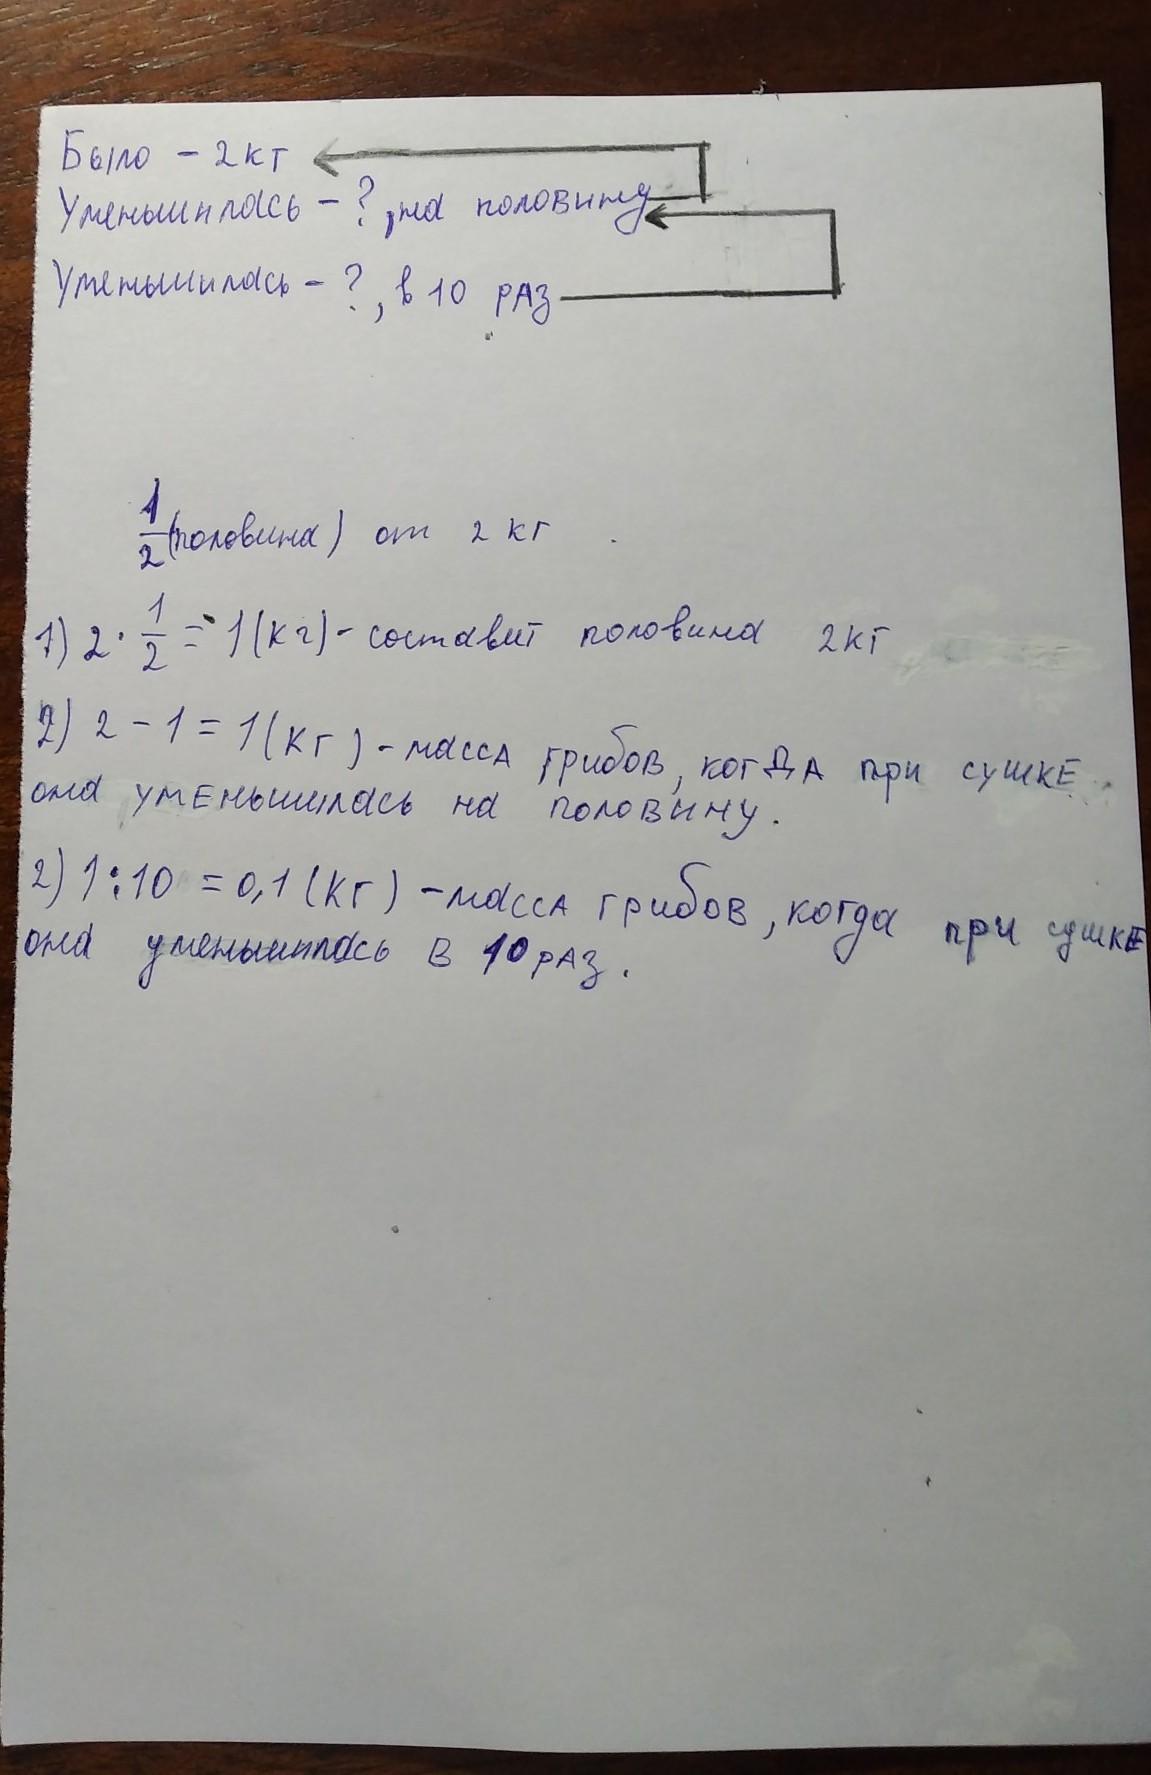 Было - 2кг
Уменьшилась - ?, на половину
Уменьшилась - ?, в 10 раз
1/2 (половина) от 2 кг
1) 2 · 1/2 = 1 (кг) - составит половина 2кг
2) 2 - 1 = 1 (кг) - масса грибов, когда при сушке
она уменьшилась на половину.
2) 1 : 10 = 0,1 (кг) - масса грибов, когда при сушке
она уменьшилась в 10 раз.